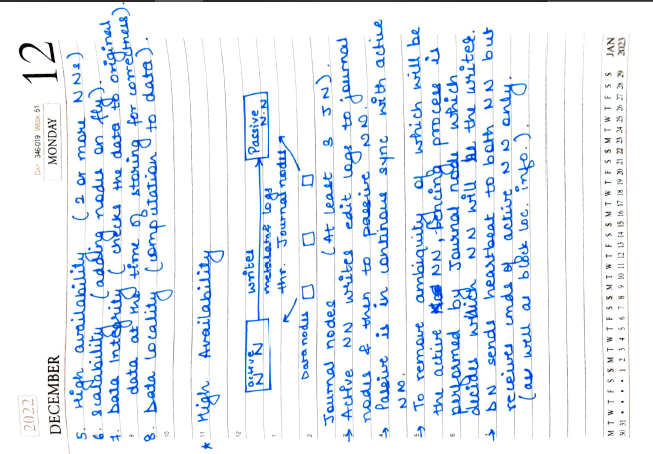 2022
DECEMBER
DAY 346-019 WEEK 51
MONDAY
12
5. High availability (2 or more NNs)
6. Scalability (adding nodes on fly).
7. Data Integrity (checks the data to original
data at the time of storing for correctness).
8. Data locality (computation to data).
* High Availability
active NN
writes
metadata logs
thr. Journal nodes
Passive NN
Data nodes
Journal nodes (At least 3 JN).
→ Active NN writes edit logs to journal
nodes & then to passive NN.
→ Passive is in continous sync with active
NN.
→ To remove ambiguity of which will be
the active NN, fencing process is
performed by Journal node which
decides which NN will be the writer.
→ DN sends heartbeat to both NN but
receives cmds of active NN only.
(as well as block loc. info.).
M T W T F S S M T W T F S S M T W T F S S M T W T F S S M T W T F S S JAN
30 31 • • • • 1 2 3 4 5 6 7 8 9 10 11 12 13 14 15 16 17 18 19 20 21 22 23 24 25 26 27 28 29 2023